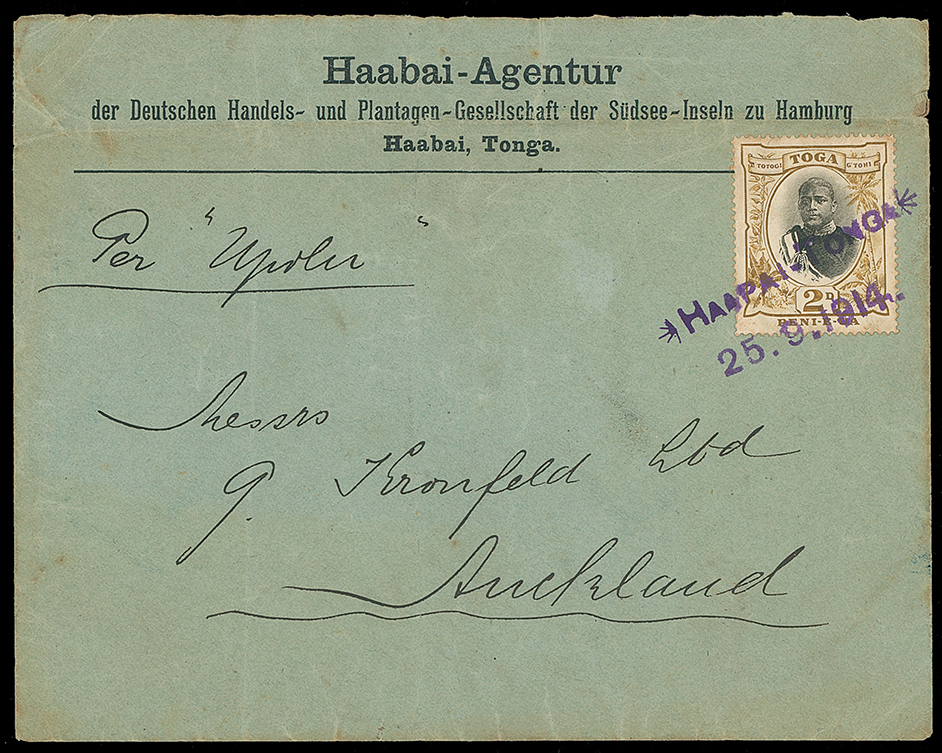 Haabai-Agentur
der Deutschen Handels- und Plantagen-Gesellschaft der Südsee-Inseln zu Hamburg
Haabai, Tonga.
TOTOGI TOGA G'TOHI
2D
PENI-E-UA
*HAAPAI-TONGA*
25.9.1914.
Per "Upolu"
Messrs
G. Kronfeld Ltd
Auckland